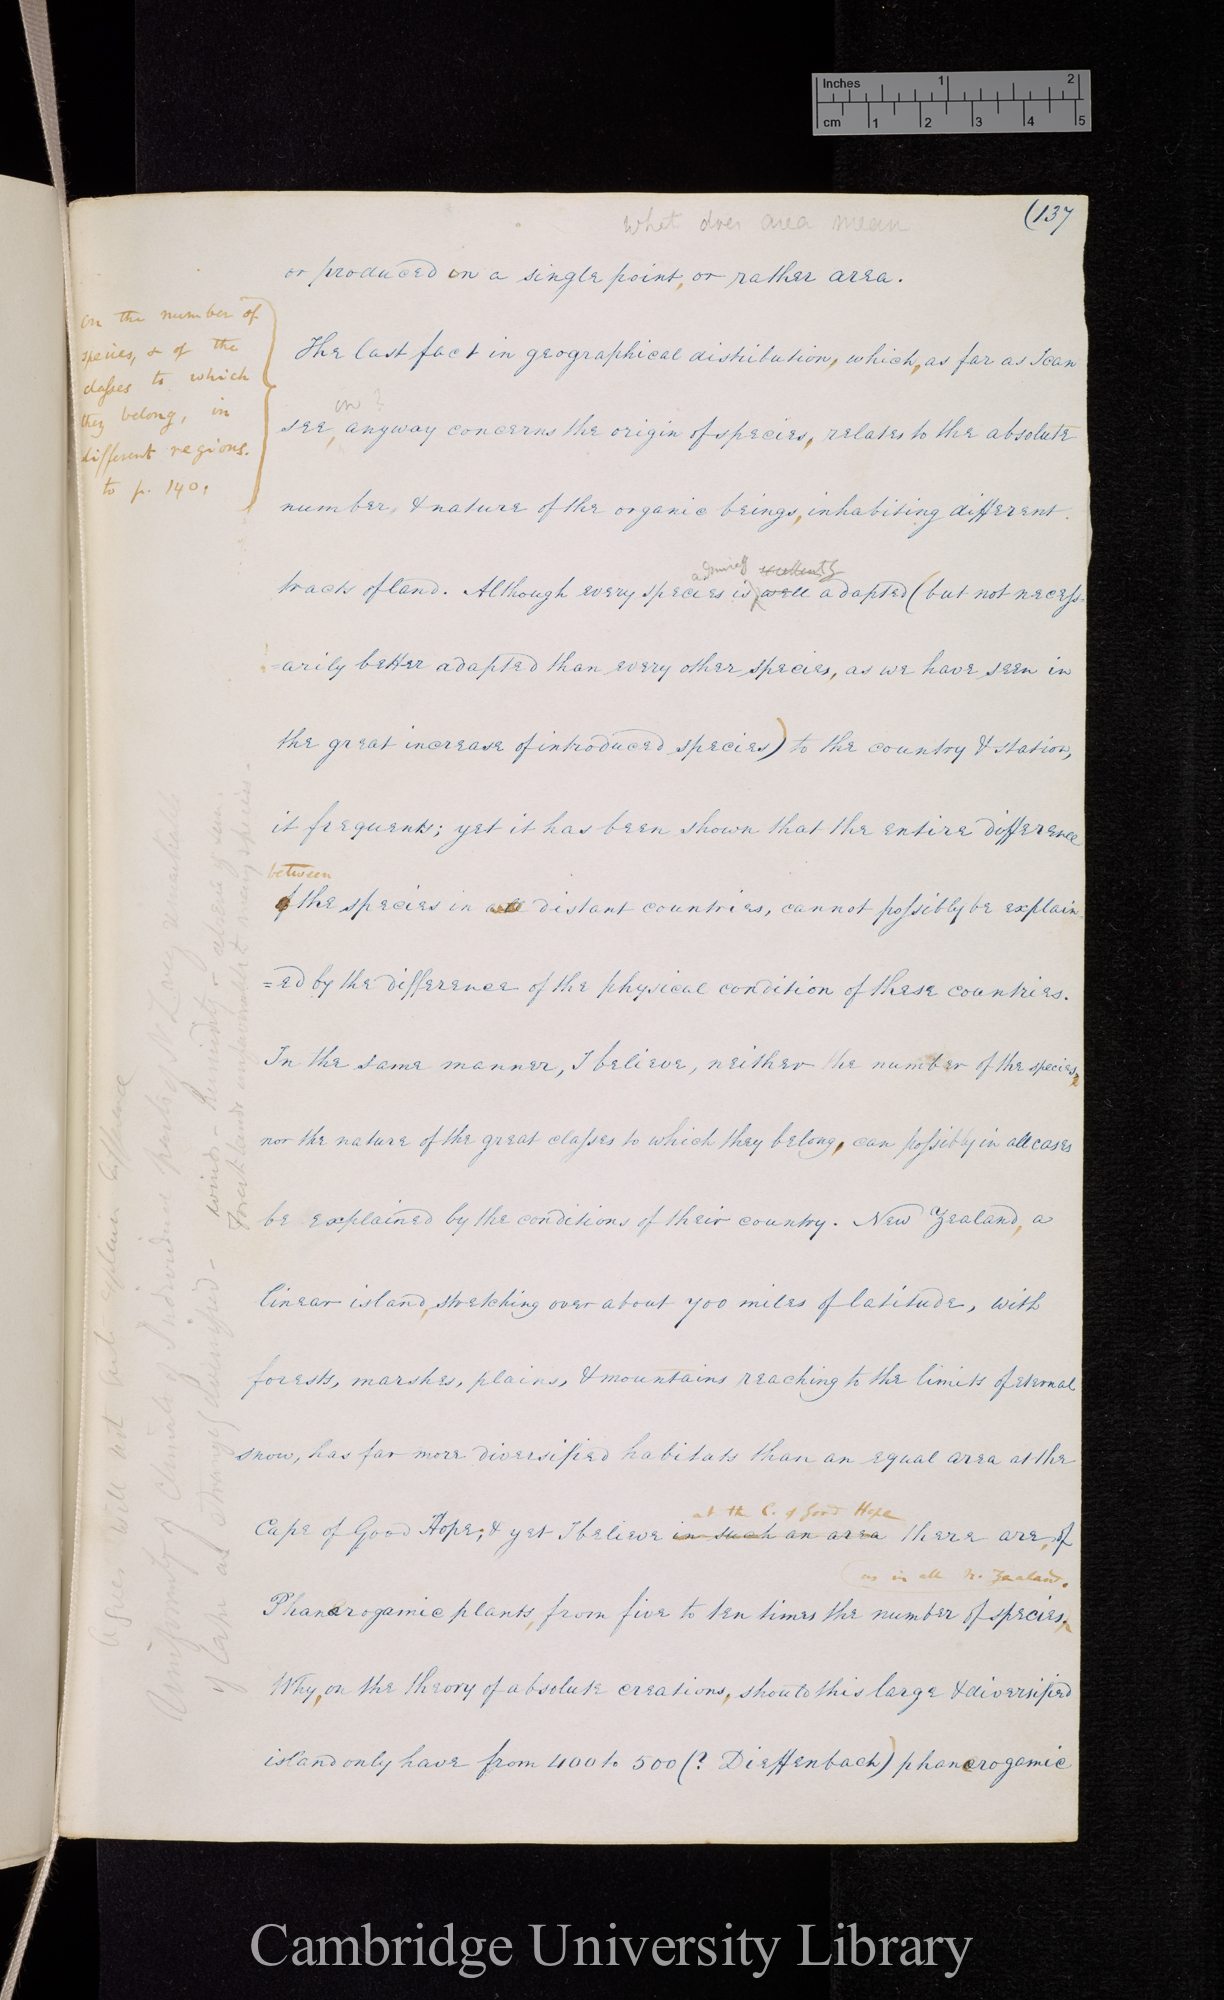 Inches 1 2
cm 1 2 3 4 5
(137
what does area mean
or produced on a single point, or rather area.
on the number of
species, & of the
classes to which
they belong, in
different regions.
to p. 140.
The last fact in geographical distribution, which, as far as I can
in ?
see, anyway concerns the origin of species, relates to the absolute
number, & nature of the organic beings, inhabiting different
tracts of land. Although every species is well adapted (but not necess-
=arily better adapted than every other species, as we have seen in
the great increase of introduced species) to the country & station,
it frequents; yet it has been shown that the entire difference
between
of the species in distant countries, cannot possibly be explain
=ed by the difference of the physical condition of these countries.
In the same manner, I believe, neither the number of the species,
nor the nature of the great classes to which they belong, can possibly in all cases
be explained by the conditions of their country. New Zealand, a
linear island, stretching over about 700 miles of latitude, with
forests, marshes, plains, & mountains reaching to the limits of eternal
snow, has far more diversified habitats than an equal area at the
at the C. of Good Hope
Cape of Good Hope; & yet I believe in such an area there are, of
as in all N. Zealand.
Phanerogamic plants, from five to ten times the number of species,
Why, on the theory of absolute creations, should this large & diversified
island only have from 400 to 500 (? Dieffenbach) phanerogamic
Cambridge University Library